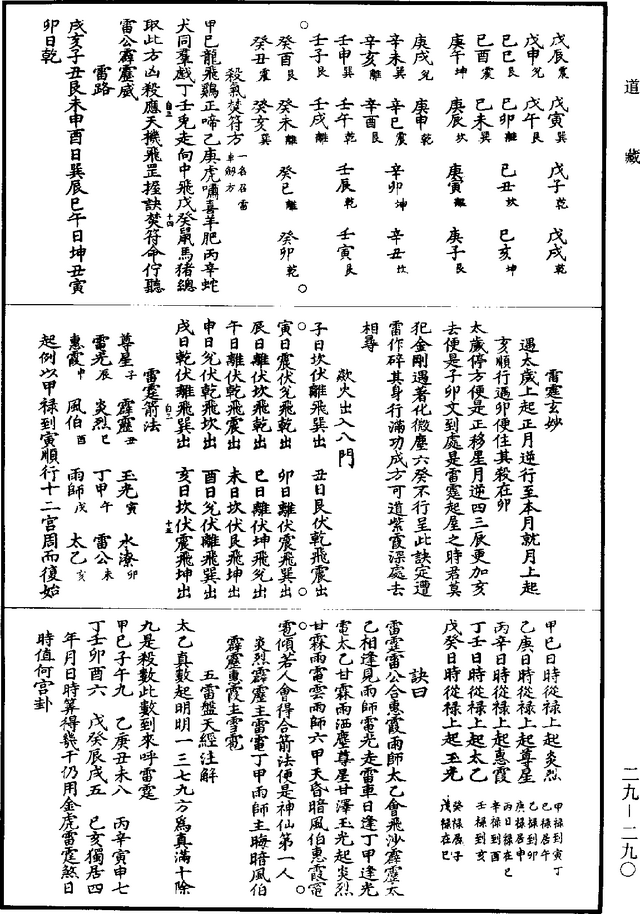 道藏
戊辰震　戊寅巽　戊子乾　戊戌乾
戊申兌　戊午艮
己巳艮　己卯離　己丑坎　己亥坤
己酉震　己未巽
庚午坤　庚辰坎　庚寅離　庚子艮
庚戌兌　庚申乾
辛未巽　辛巳震　辛卯坤　辛丑坎
辛亥離　辛酉艮
壬申巽　壬午乾　壬辰乾　壬寅艮
壬子艮　壬戌離
癸酉艮　癸未離　癸巳離　癸卯乾
癸丑震　癸亥巽
殺氣焚符方一名召雷車朝方
甲己龍飛鷄正啼乙庚虎嘯喜羊肥丙辛蛇
犬同羣戲丁壬兎走向中飛戊癸鼠馬猪總
取此方凶殺應天機飛罡握訣焚符命佇聽
雷公霹靂威
雷路
戌亥子丑艮未申酉日巽辰巳午日坤丑寅
卯日乾
雷霆玄妙
遇太歲上起正月逆行至本月就月上起
亥順行遇卯便住其殺在卯
太歲停方便是正移星月逆四三辰更加亥
去便是子卯文到處是雷霆起屋之時君莫
犯金剛遇著化微塵六癸不行呈此訣定遭
雷作碎其身行滿功成方可道紫霞深處去
相尋
歘火出入八門
子日坎伏離飛巽出　丑日艮伏乾飛震出
寅日震伏兌飛乾出　卯日離伏震飛巽出
辰日離伏坎飛乾出　巳日離伏坤飛兌出
午日離伏乾飛震出　未日坎伏艮飛坤出
申日兌伏乾飛坎出　酉日兌伏離飛巽出
戌日乾伏離飛巽出　亥日坎伏震飛坤出
雷霆箭法
尊星子　霹靂丑　玉光寅　水潦卯
雷光辰　炎烈巳　丁甲午　雷公未
惠霞申　風伯酉　雨師戌　太乙亥
起例以甲祿到寅順行十二宮周而復始
甲己日時從祿上起炎烈　甲祿到寅丁己祿居午
乙庚日時從祿上起尊星　乙祿到卯庚祿居申
丙辛日時從祿上起惠霞　丙日祿在巳辛祿到酉
丁壬日時從祿上起太乙　壬祿到亥
戊癸日時從祿上起玉光　癸祿居子戊祿在巳
訣曰
雷霆雷公合惠霞雨師太乙會飛沙霹靂太
乙相逢見雨師雷光走雷車日逢丁甲逢光
電太乙甘霖雨洒塵尊星甘澤玉光起炎烈
甘霖雨雷雲雨師六甲天昏暗風伯惠霞雹
雹傾若人會得合箭法便是神仙第一人
炎烈霹靂主雷電丁甲雨師主晦暗風伯
霹靂惠霞主雪雹
五雷盤天經注解
太乙真數起明明一三七九方為真滿十除
九是殺數此數到來呼雷霆
甲己子午九　乙庚丑未八　丙辛寅申七
丁壬卯酉六　戊癸辰戌五　巳亥獨居四
年月日時筭得幾千仍用金虎雷霆煞日
時值何宮卦
二九—二九〇